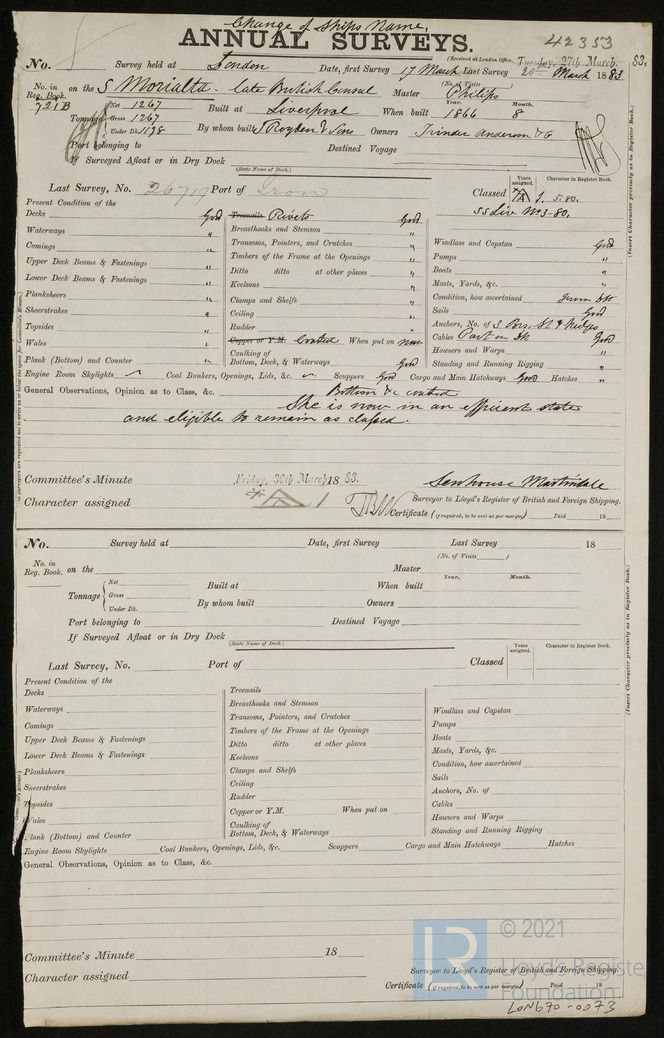 Change of Ships Name.
ANNUAL SURVEYS.
42353
(Received at London Office, Tuesday, 27th March. 83.
No. Survey held at London Date, first Survey 17 March Last Survey 20 March 1883
(No. of Visits
No. in Reg. Book. on the S Morialta - late British Consul Master Philips
721B Net 1267 Year. Month.
Tonnage Gross 1267 Built at Liverpool When built 1866 8
Under Dk. 1198 By whom built T Royden & Sons Owners Trinder Anderson & Co
Port belonging to Destined Voyage
If Surveyed Afloat or in Dry Dock
(State Name of Dock.)
Last Survey, No. 26719 Port of Iron Classed A 1. 5.80.
Years assigned. Character in Register Book.
SS Liv No 3-80.
(Insert Character precisely as in Register Book.)
Present Condition of the
Decks Good Treenails Rivets Good
Waterways " Breasthooks and Stemson " Windlass and Capstan Good
Comings " Transoms, Pointers, and Crutches " Pumps "
Upper Deck Beams & Fastenings " Timbers of the Frame at the Openings " Boats "
Lower Deck Beams & Fastenings " Ditto ditto at other places " Masts, Yards, &c. "
Planksheers " Keelsons " Condition, how ascertained from dk
Sheerstrakes " Clamps and Shelfs " Sails Good
Topsides " Ceiling " Anchors, No. of 3 Brs, St & Kedges
Wales " Rudder " Cables Part on dk Good
Copper or Y.M. Coated When put on now Hawsers and Warps "
Plank (Bottom) and Counter " Caulking of Bottom, Deck, & Waterways Good Standing and Running Rigging "
Engine Room Skylights Coal Bunkers, Openings, Lids, &c. Scuppers Good Cargo and Main Hatchways Good Hatches "
General Observations, Opinion as to Class, &c. Bottom &c coated
She is now in an efficient state
and eligible to remain as classed.
Committee's Minute Friday, 30th March 1883. Senhouse Martindale
Character assigned A 1 Surveyor to Lloyd's Register of British and Foreign Shipping.
Certificate (if required, to be sent as per margin) Paid 18
No. Survey held at Date, first Survey Last Survey 18
(No. of Visits )
No. in Reg. Book. on the Master
Net Year. Month.
Tonnage Gross Built at When built
Under Dk. By whom built Owners
Port belonging to Destined Voyage
If Surveyed Afloat or in Dry Dock
(State Name of Dock.)
Years assigned. Character in Register Book.
Last Survey, No. Port of Classed
(Insert Character precisely as in Register Book.)
Present Condition of the
Decks Treenails
Waterways Breasthooks and Stemson Windlass and Capstan
Comings Transoms, Pointers, and Crutches Pumps
Upper Deck Beams & Fastenings Timbers of the Frame at the Openings Boats
Lower Deck Beams & Fastenings Ditto ditto at other places Masts, Yards, &c.
Planksheers Keelsons Condition, how ascertained
Sheerstrakes Clamps and Shelfs Sails
Topsides Ceiling Anchors, No. of
Wales Rudder Cables
Copper or Y.M. When put on Hawsers and Warps
Plank (Bottom) and Counter Caulking of Bottom, Deck, & Waterways Standing and Running Rigging
Engine Room Skylights Coal Bunkers, Openings, Lids, &c. Scuppers Cargo and Main Hatchways Hatches
General Observations, Opinion as to Class, &c.
© 2021
LR
Lloyd's Register
Foundation
Committee's Minute 18
Character assigned Surveyor to Lloyd's Register of British and Foreign Shipping.
Certificate (if required, to be sent as per margin) Paid 18
LON670-0073